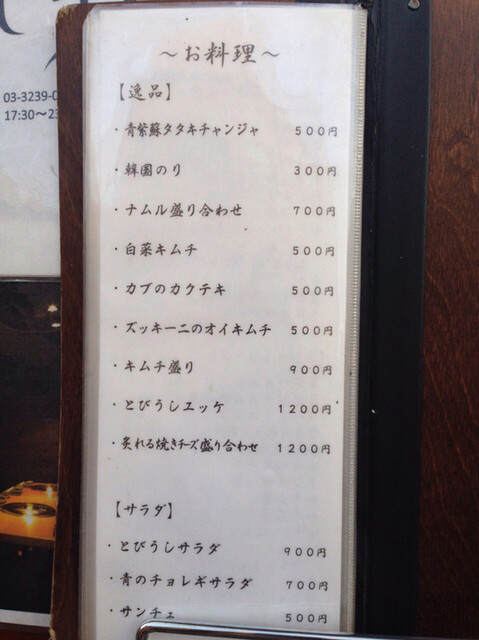 03-3239-
17:30～2
～お料理～
【逸品】
・青紫蘇タタキチャンジャ 500円
・韓国のり 300円
・ナムル盛り合わせ 700円
・白菜キムチ 500円
・カブのカクテキ 500円
・ズッキーニのオイキムチ 500円
・キムチ盛り 900円
・とびうしユッケ 1200円
・炙れる焼きチーズ盛り合わせ 1200円
【サラダ】
・とびうしサラダ 900円
・青のチョレギサラダ 700円
・サンチェ 500円